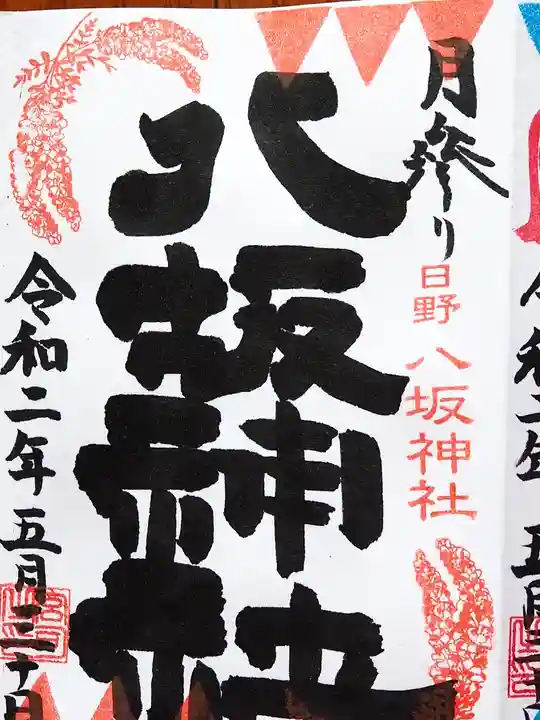 月参り
日野八坂神社
八坂神社
令和二年五月三十日